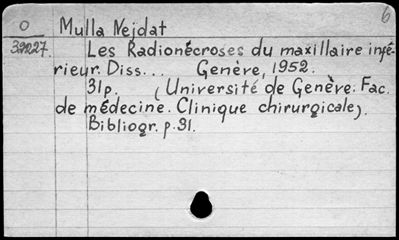 6
O Mulla Nejdat
39227. Les Radionécroses du maxillaire infé-
rieur. Diss... Genève, 1952.
31p. (Université de Genève. Fac.
de médecine. Clinique chirurgicale).
Bibliogr. p.31.